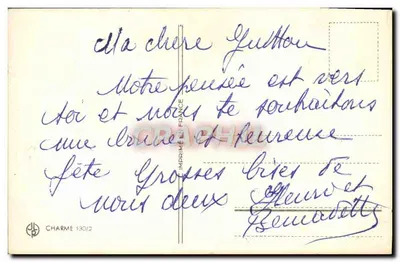 Ma chère
Notre pensée est vers
toi et nous te souhaitons
une bonne et heureuse
fête Grosses bises de
nous deux Henri et
Bernadette
IMPRIMÉ EN FRANCE
CHARME 13012